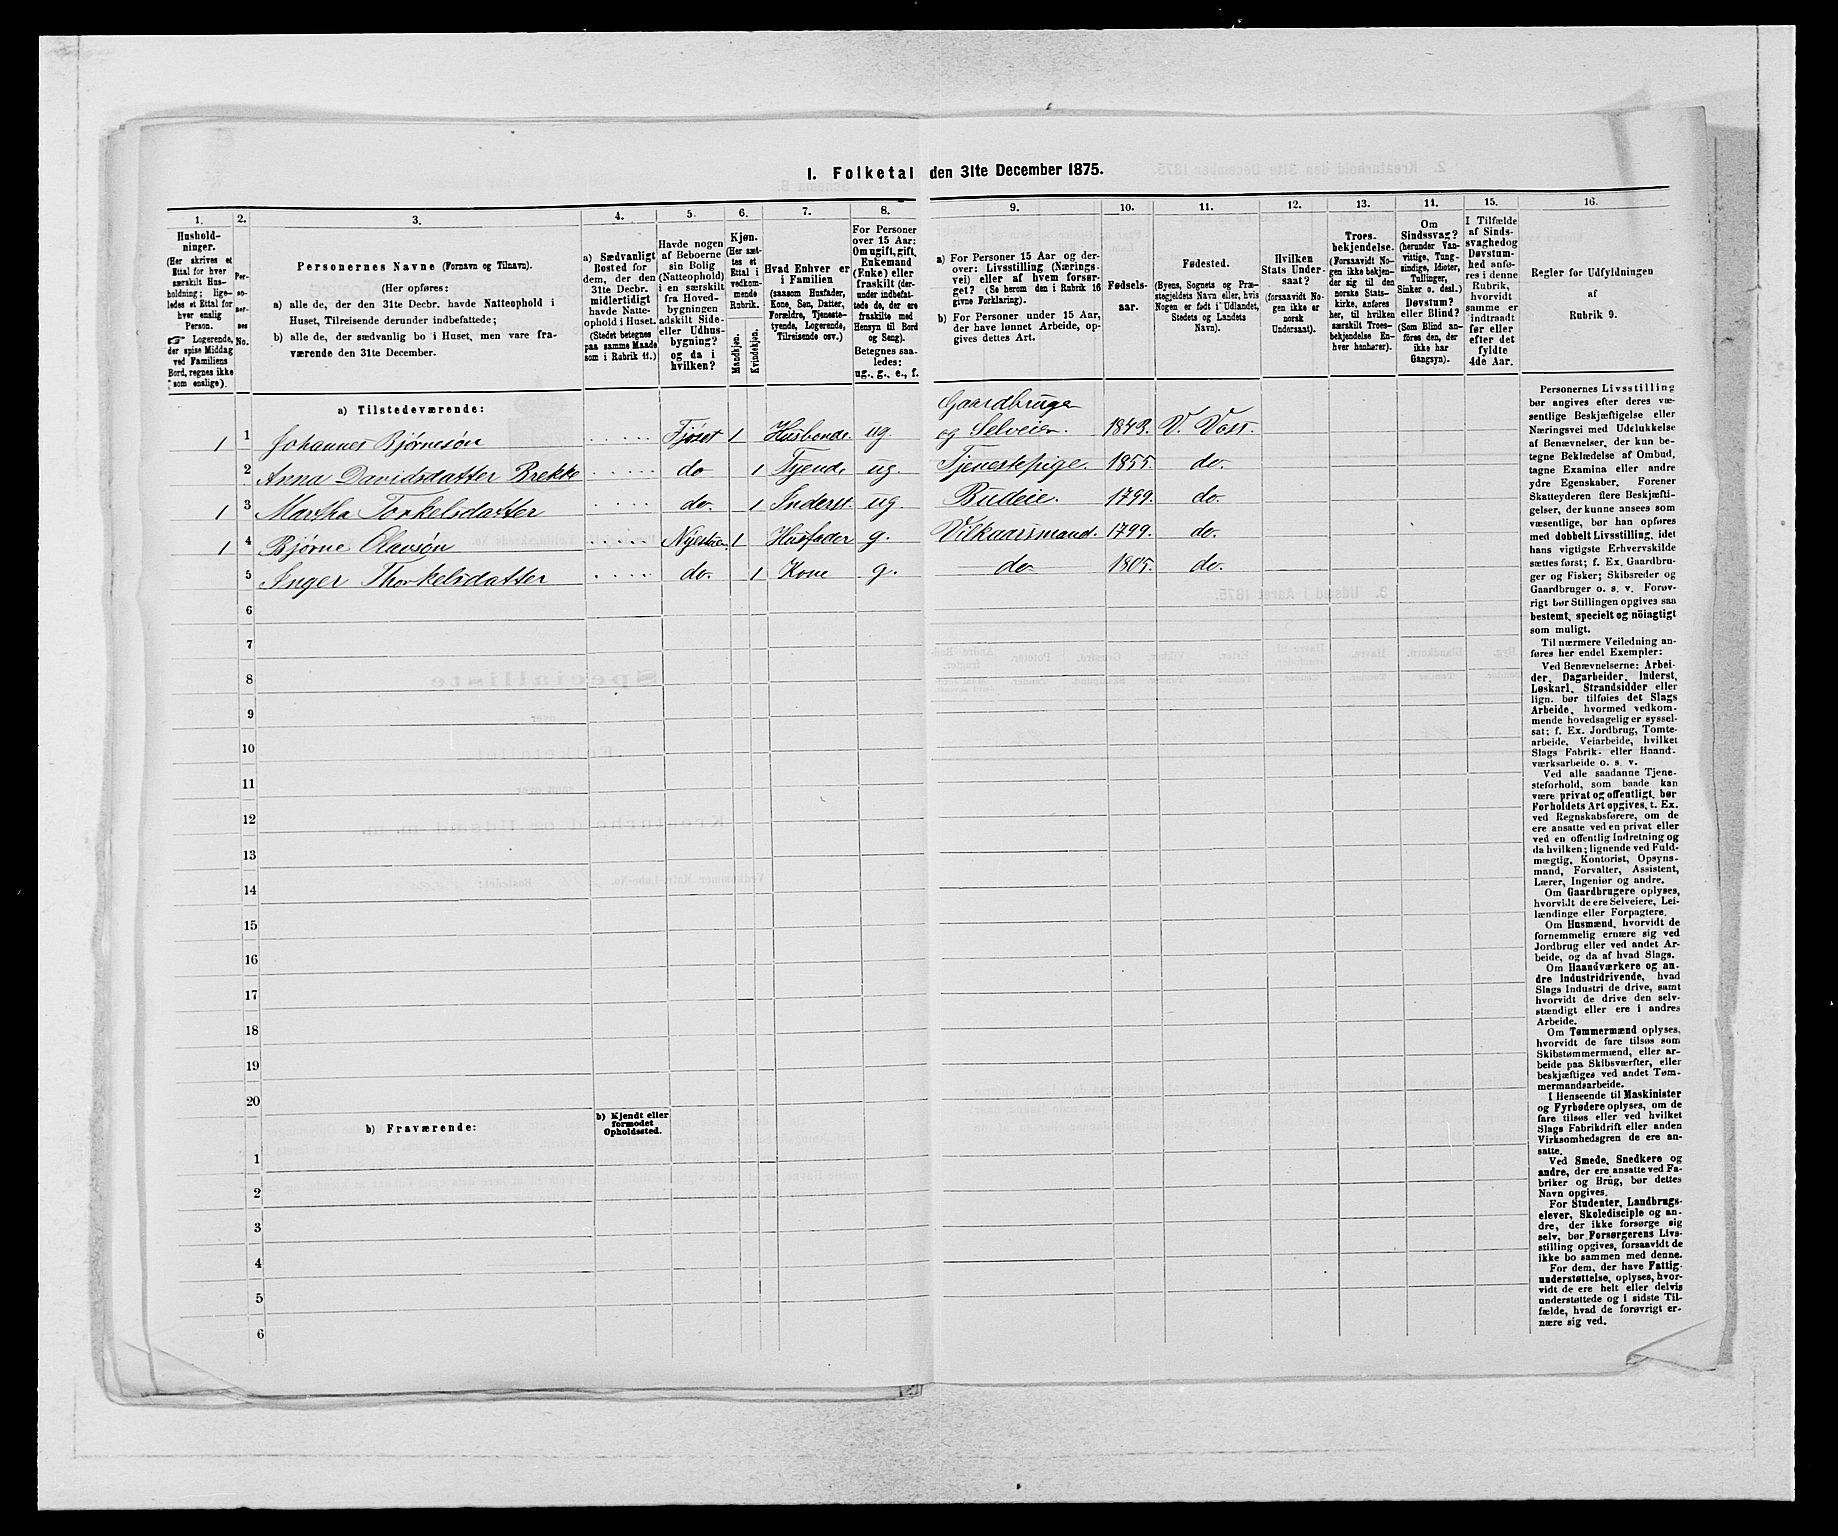 I. Folketal den 31te December 1875.
1. 2. 3. 4. 5. 6. 7. 8. 9. 10. 11. 12. 13. 14. 15. 16.
Hushold-
ninger.
(Her skrives et
Ettal for hver
særskilt Hus-
holdning; lige-
ledes et Ettal for
hver enslig
Person.
☞ Logerende,
der spise Middag
ved Familiens
Bord, regnes ikke
som enslige).
Per-
so-
ner-
nes
No.
Personernes Navne (Fornavn og Tilnavn).
(Her opføres:
a) alle de, der den 31te Decbr. havde Natteophold i
Huset, Tilreisende derunder indbefattede;
b) alle de, der sædvanlig bo i Huset, men vare fra-
værende den 31te December.
a) Sædvanligt
Bosted for
dem, der den
31te Decbr.
midlertidigt
havde Natte-
ophold i Huset.
(Stedet betegnes
paa samme Maade
som i Rubrik 11.)
Havde nogen
af Beboerne
sin Bolig
(Natteophold)
i en særskilt
fra Hoved-
bygningen
adskilt Side-
eller Udhus-
bygning?
og da i
hvilken?
Kjøn.
(Her sæt-
tes et
Ettal i
vedkom-
mende
Rubrik.
Mandkjøn.
Kvindekjøn.
Hvad Enhver er
i Familien
(saasom Husfader,
Kone, Søn, Datter,
Forældre, Tjeneste-
tyende, Logerende,
Tilreisende osv.)
For Personer
over 15 Aar:
Om ugift, gift,
Enkemand
(Enke) eller
fraskilt (der-
under indbefat-
tede de, der ere
fraskilte med
Hensyn til Bord
og Seng).
Betegnes saa-
ledes:
ug., g., e., f.
a) For Personer 15 Aar og der-
over: Livsstilling (Nærings-
vei) eller af hvem forsør-
get? (Se herom den i Rubrik 16
givne Forklaring).
b) For Personer under 15 Aar,
der have lønnet Arbeide, op-
gives dettes Art.
Fødsels-
aar.
Fødested.
(Byens, Sognets og Præ-
stegjeldets Navn eller, hvis
Nogen er født i Udlandet,
Stedets og Landets
Navn).
Hvilken
Stats Under-
saat?
(forsaavidt No-
gen ikke er
norsk
Undersaat).
Troes-
bekjendelse.
(Forsaavidt No-
gen ikke bekjen-
der sig til den
norske Stats-
kirke, anføres
her, til hvilken
særskilt Troes-
bekjendelse En-
hver henhører).
Om
Sindssvag?
(herunder Van-
vittige, Tung-
sindige, Idioter,
Tullinger,
Sinker o. desl.)
Døvstum?
eller Blind?
(Som Blind an-
føres den, der
ikke har
Gangsyn).
I Tilfælde
af Sinds-
svaghed og
Døvstum-
hed anfø-
res i denne
Rubrik,
hvorvidt
samme er
indtraadt
før eller
efter det
fyldte
4de Aar.
Regler for Udfyldningen
af
Rubrik 9.
a) Tilstedeværende:
1 1 Johannes Bjørnesøn Fjøset 1 Husbonde. ug. Gaardbruger
og Selveier. 1843. V. Voss.
2 Anna Davidsdatter Brekke do 1 Tyende ug. Tjenestepige. 1855. do.
1 3 Martha Torkelsdatter do. 1 Inderst ug. Budeie. 1799. do.
1 4 Bjørne Olavsøn Nyestuen 1 Husfader g. Vilkaarsmand. 1799. do.
5 Inger Thorkelsdatter do. 1 Kone g. do 1805. do.
6
7
8
9
10
11
12
13
14
15
16
17
18
19
20
b) Fraværende:
b) Kjendt eller
formodet
Opholdssted.
1
2
3
4
5
6
Personernes Livsstilling
bør angives efter deres væ-
sentlige Beskjæftigelse eller
Næringsvei med Udelukkelse
af Benævnelser, der kun be-
tegne Beklædelse af Ombud,
tagne Examina eller andre
ydre Egenskaber. Forener
Skatteyderen flere Beskjæfti-
gelser, der kunne ansees som
væsentlige, bør han opføres
med dobbelt Livsstilling, idet
hans vigtigste Erhvervskilde
sættes først; f. Ex. Gaardbru-
ger og Fisker; Skibsreder og
Gaardbruger o. s. v. Forøv-
rigt bør Stillingen opgives saa
bestemt, specielt og nöiagtigt
som muligt.
Til nærmere Veiledning an-
føres her endel Exempler:
Ved Benævnelserne: Arbei-
der, Dagarbeider, Inderst,
Løskarl, Strandsidder eller
lign. bør tilføies det Slags
Arbeide, hvormed vedkom-
mende hovedsagelig er syssel-
sat; f. Ex. Jordbrug, Tomte-
arbeide, Veiarbeide, hvilket
Slags Fabrik- eller Haand-
værksarbeide o. s. v.
Ved alle saadanne Tjene-
steforhold, som baade kan
være privat og offentligt, bør
Forholdets Art opgives, t. Ex.
ved Regnskabsførere, om de
ere ansatte ved en privat eller
ved en offentlig Indretning og
da hvilken; lignende ved Fuld-
mægtig, Kontorist, Opsyns-
mand, Forvalter, Assistent,
Lærer, Ingeniør og andre.
Om Gaardbrugere oplyses,
hvorvidt de ere Selveiere, Lei-
lændinge eller Forpagtere.
Om Husmænd, hvorvidt de
fornemmelig ernære sig ved
Jordbrug eller ved andet Ar-
beide, og da af hvad Slags.
Om Haandværkere og an-
dre Industridrivende, hvad
Slags Industri de drive, samt
hvorvidt de drive den selv-
stændigt eller ere i andres
Arbeide.
Om Tømmermænd oplyses,
hvorvidt de fare tilsøs som
Skibstømmermænd, eller ar-
beide paa Skibsværfter, eller
beskjæftiges ved andet Tøm-
mermandsarbeide.
I Henseende til Maskinister
og Fyrbødere oplyses, om de
fare tilsøs eller ved hvilket
Slags Fabrikdrift eller anden
Virksomhedsgren de ere an-
satte.
Ved Smede, Snedkere og
andre, der ere ansatte ved Fa-
briker og Brug, bør dettes
Navn opgives.
For Studenter, Landbrugs-
elever, Skoledisciple og an-
dre, der ikke forsørge sig
selv, bør Forsørgerens Livs-
stilling opgives, forsaavidt de
ikke bo sammen med denne.
For dem, der have Fattig-
understøttelse, oplyses, hvor-
vidt de ere helt eller delvis
understøttede og i sidste Til-
fælde, hvad de forøvrigt er-
nære sig ved.